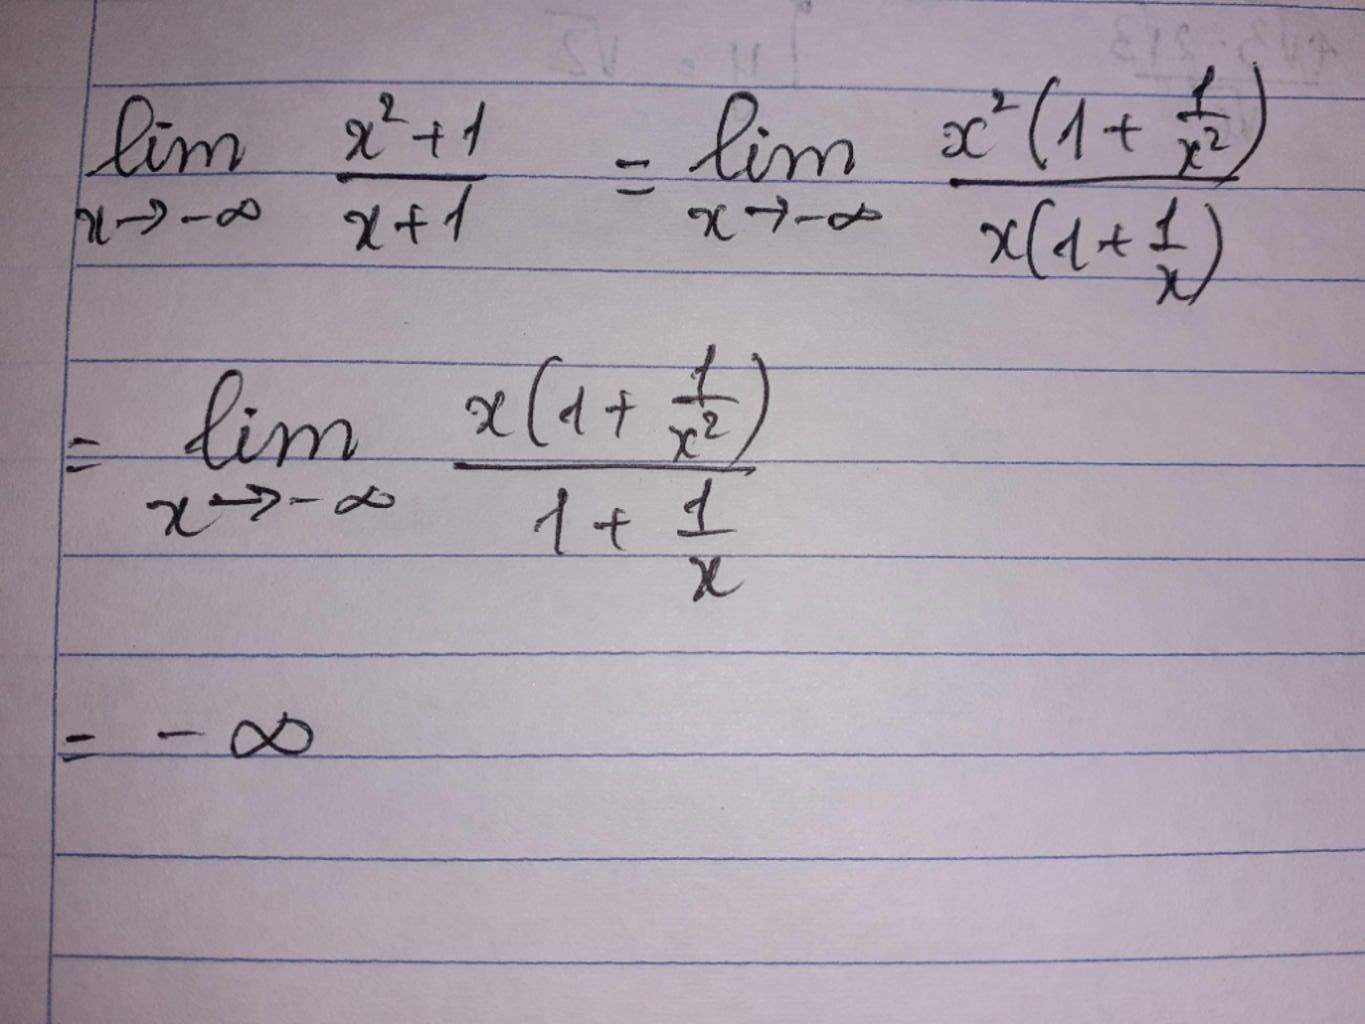 lim x→-∞ (x²+1)/(x+1) = lim x→-∞ x²(1+1/x²)/x(1+1/x)
= lim x→-∞ x(1+1/x²)/(1+1/x)
= -∞